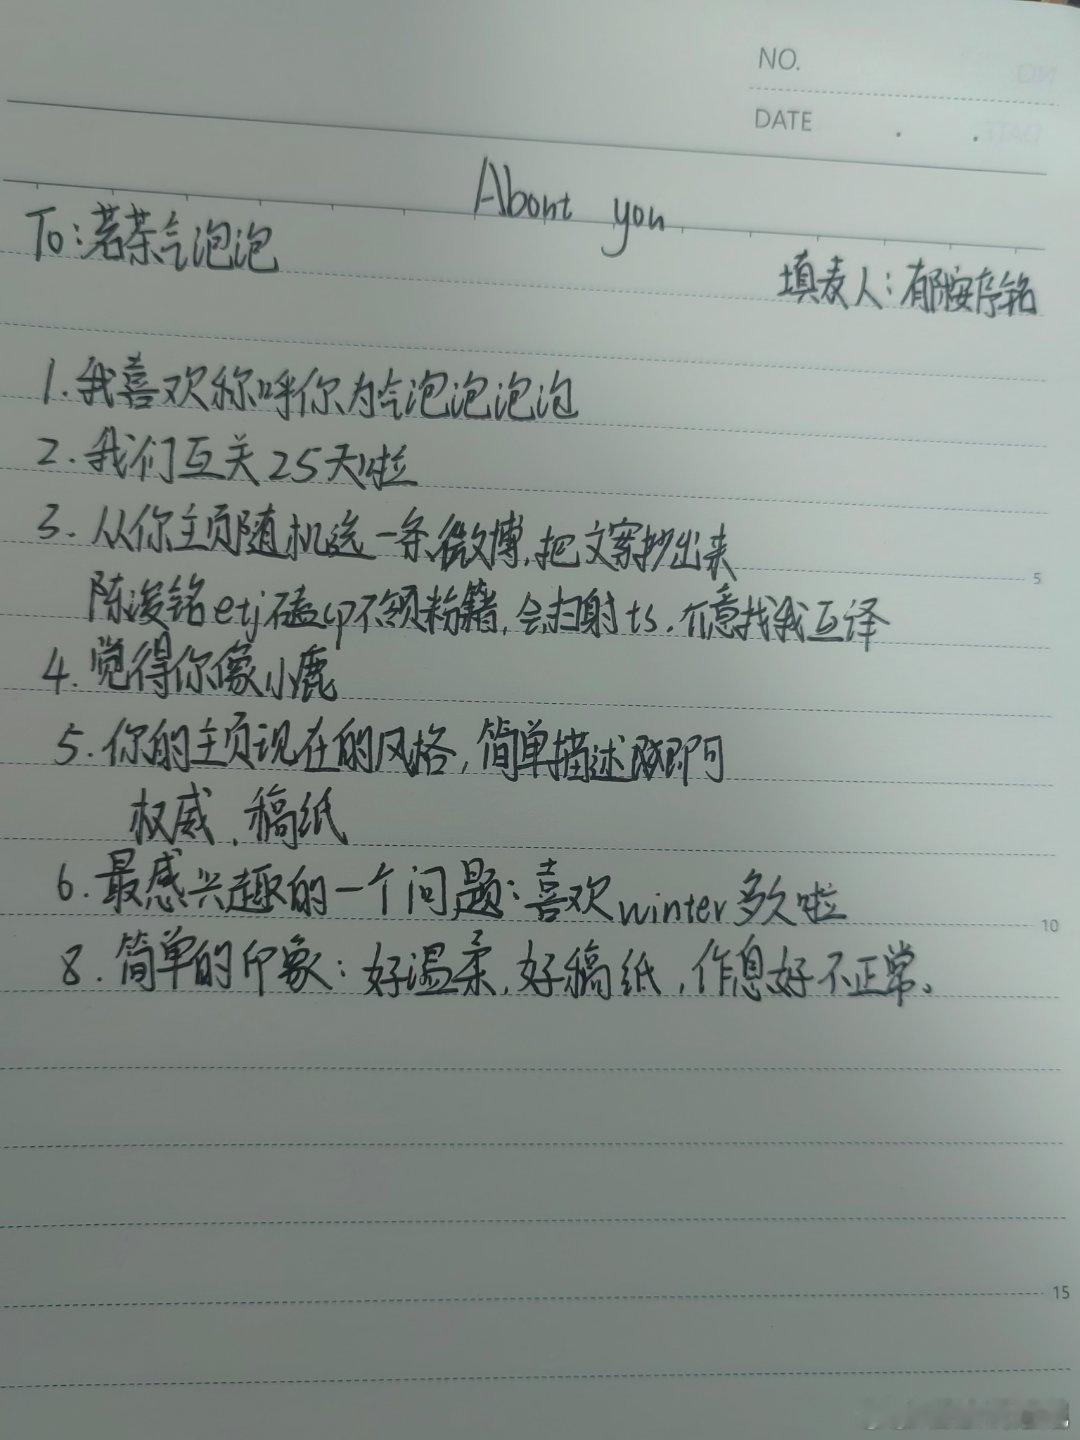 NO.
DATE . .
About you
To:茗茶气泡泡
填表人:郁桉序铭
1.我喜欢称呼你为气泡泡泡泡
2.我们互关25天啦
3.从你主页随机选一条微博,把文案抄出来
陈浚铭etj磕cp不领粉籍,会扫射ts.介意找我互译
4.觉得你像小鹿
5.你的主页现在的风格,简单描述即可
权威、稿纸
6.最感兴趣的一个问题:喜欢winter多久啦
8.简单的印象:好温柔,好稿纸,作息好不正常。
5
10
15